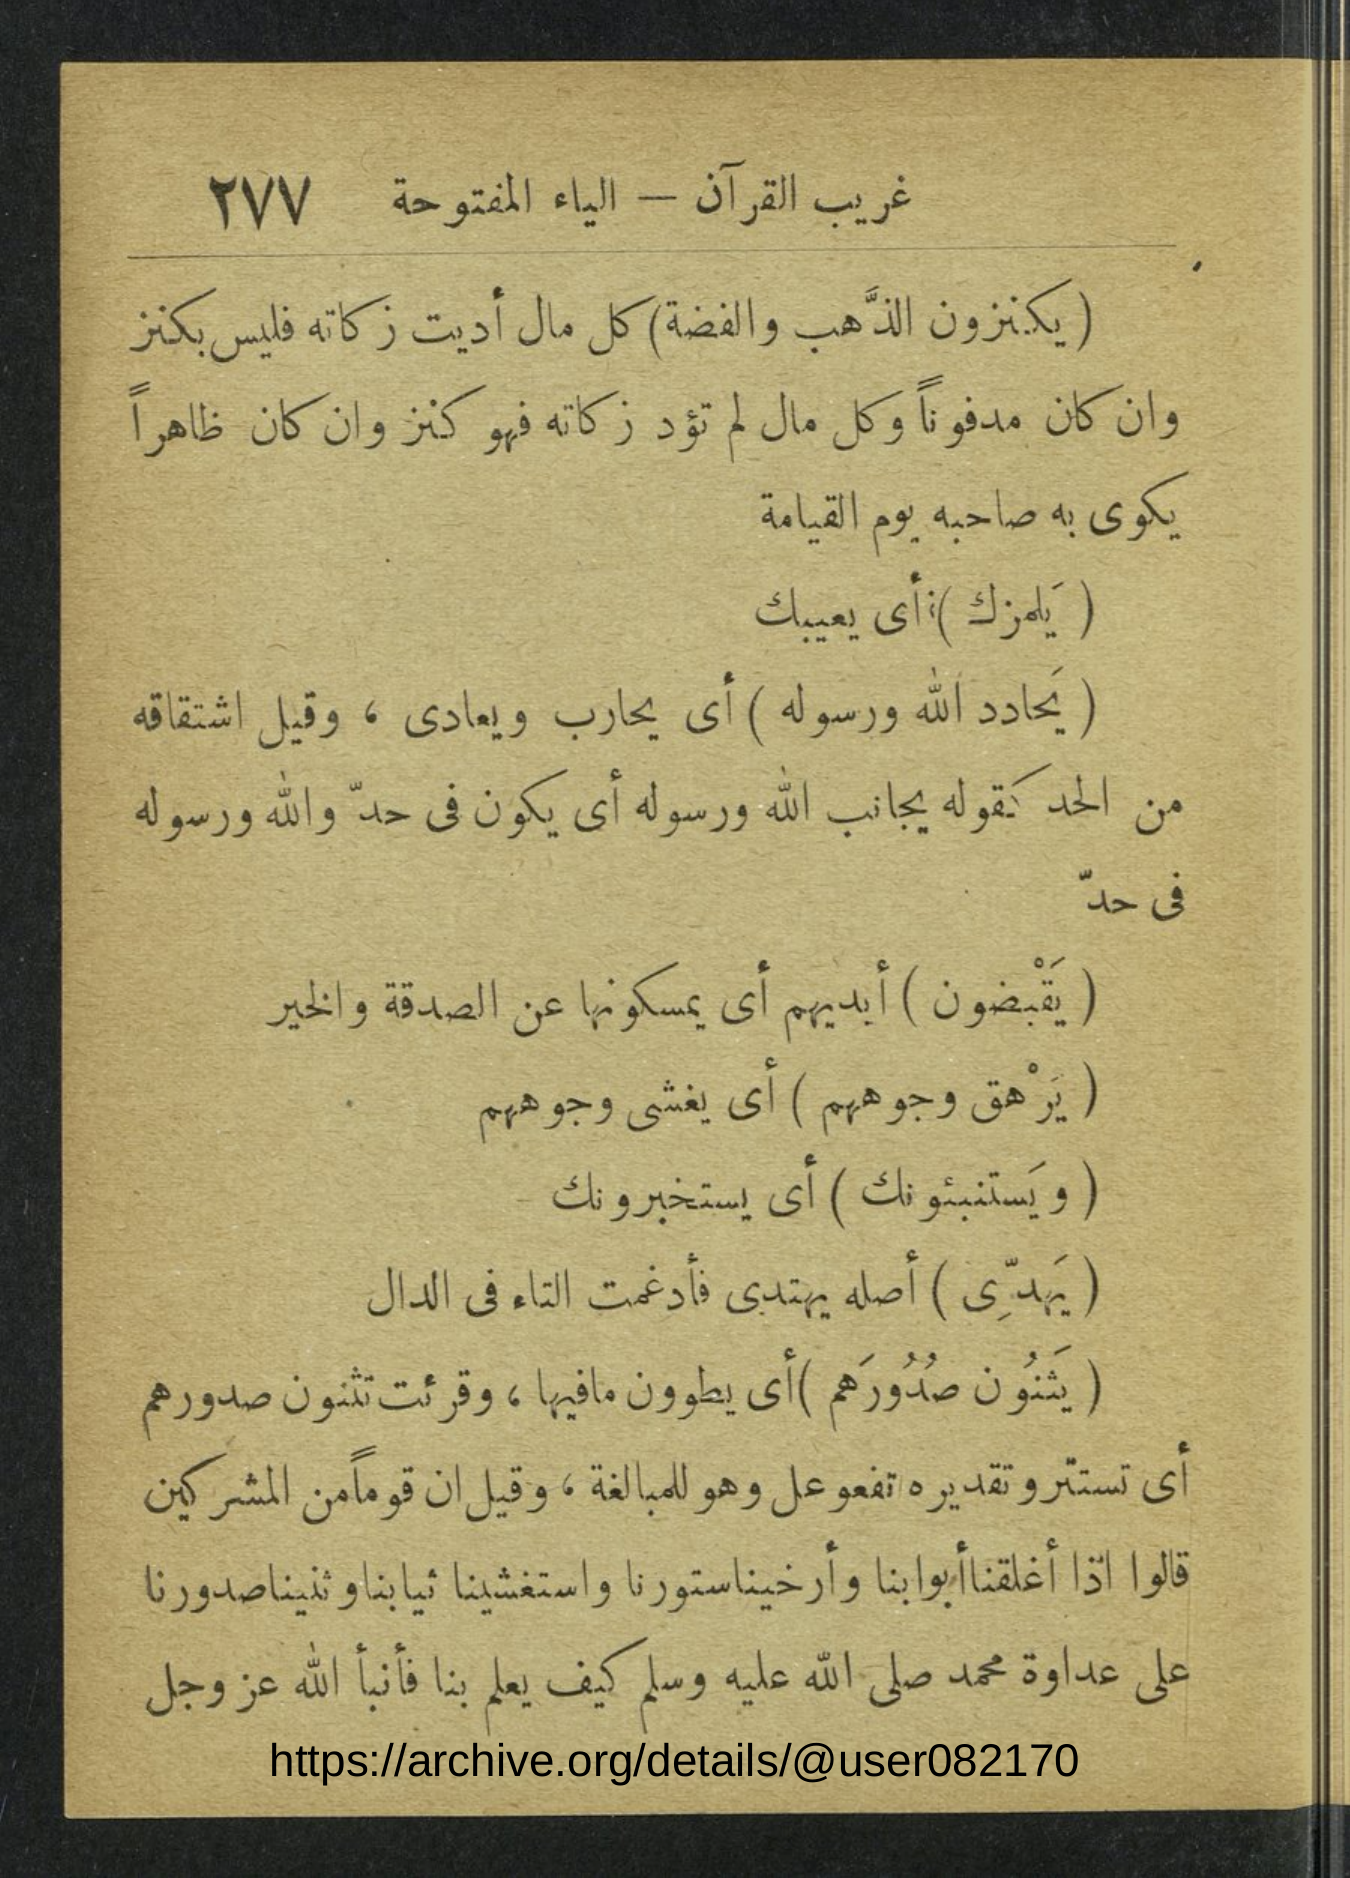 غريب القرآن — الياء المفتوحة ٢٧٧
( يكنزون الذَّهب والفضة) كل مال أديت زكاته فليس بكنز
وان كان مدفوناً وكل مال لم تؤد زكاته فهو كنز وان كان ظاهراً
يكوى به صاحبه يوم القيامة
( يَلمزك ) أى يعيبك
( يَحادد الله ورسوله ) أى يحارب ويعادى ، وقيل اشتقاقه
من الحد كقوله يجانب الله ورسوله أى يكون فى حدّ والله ورسوله
فى حدّ
( يَقْبضون ) أيديهم أى يمسكونها عن الصدقة والخير
( يَرْهق وجوههم ) أى يغشى وجوههم
( ويَستنبئونك ) أى يستخبرونك
( يَهدِّى ) أصله يهتدى فأدغمت التاء فى الدال
( يَثنُون صُدُورَهم ) أى يطوون مافيها ، وقرئت تثنون صدورهم
أى تستتر وتقديره تفعوعل وهو للمبالغة ، وقيل ان قوماً من المشركين
قالوا اذا أغلقنا أبوابنا وأرخينا ستورنا واستغشينا ثيابنا وثنينا صدورنا
على عداوة محمد صلى الله عليه وسلم كيف يعلم بنا فأنبأ الله عز وجل
https://archive.org/details/@user082170